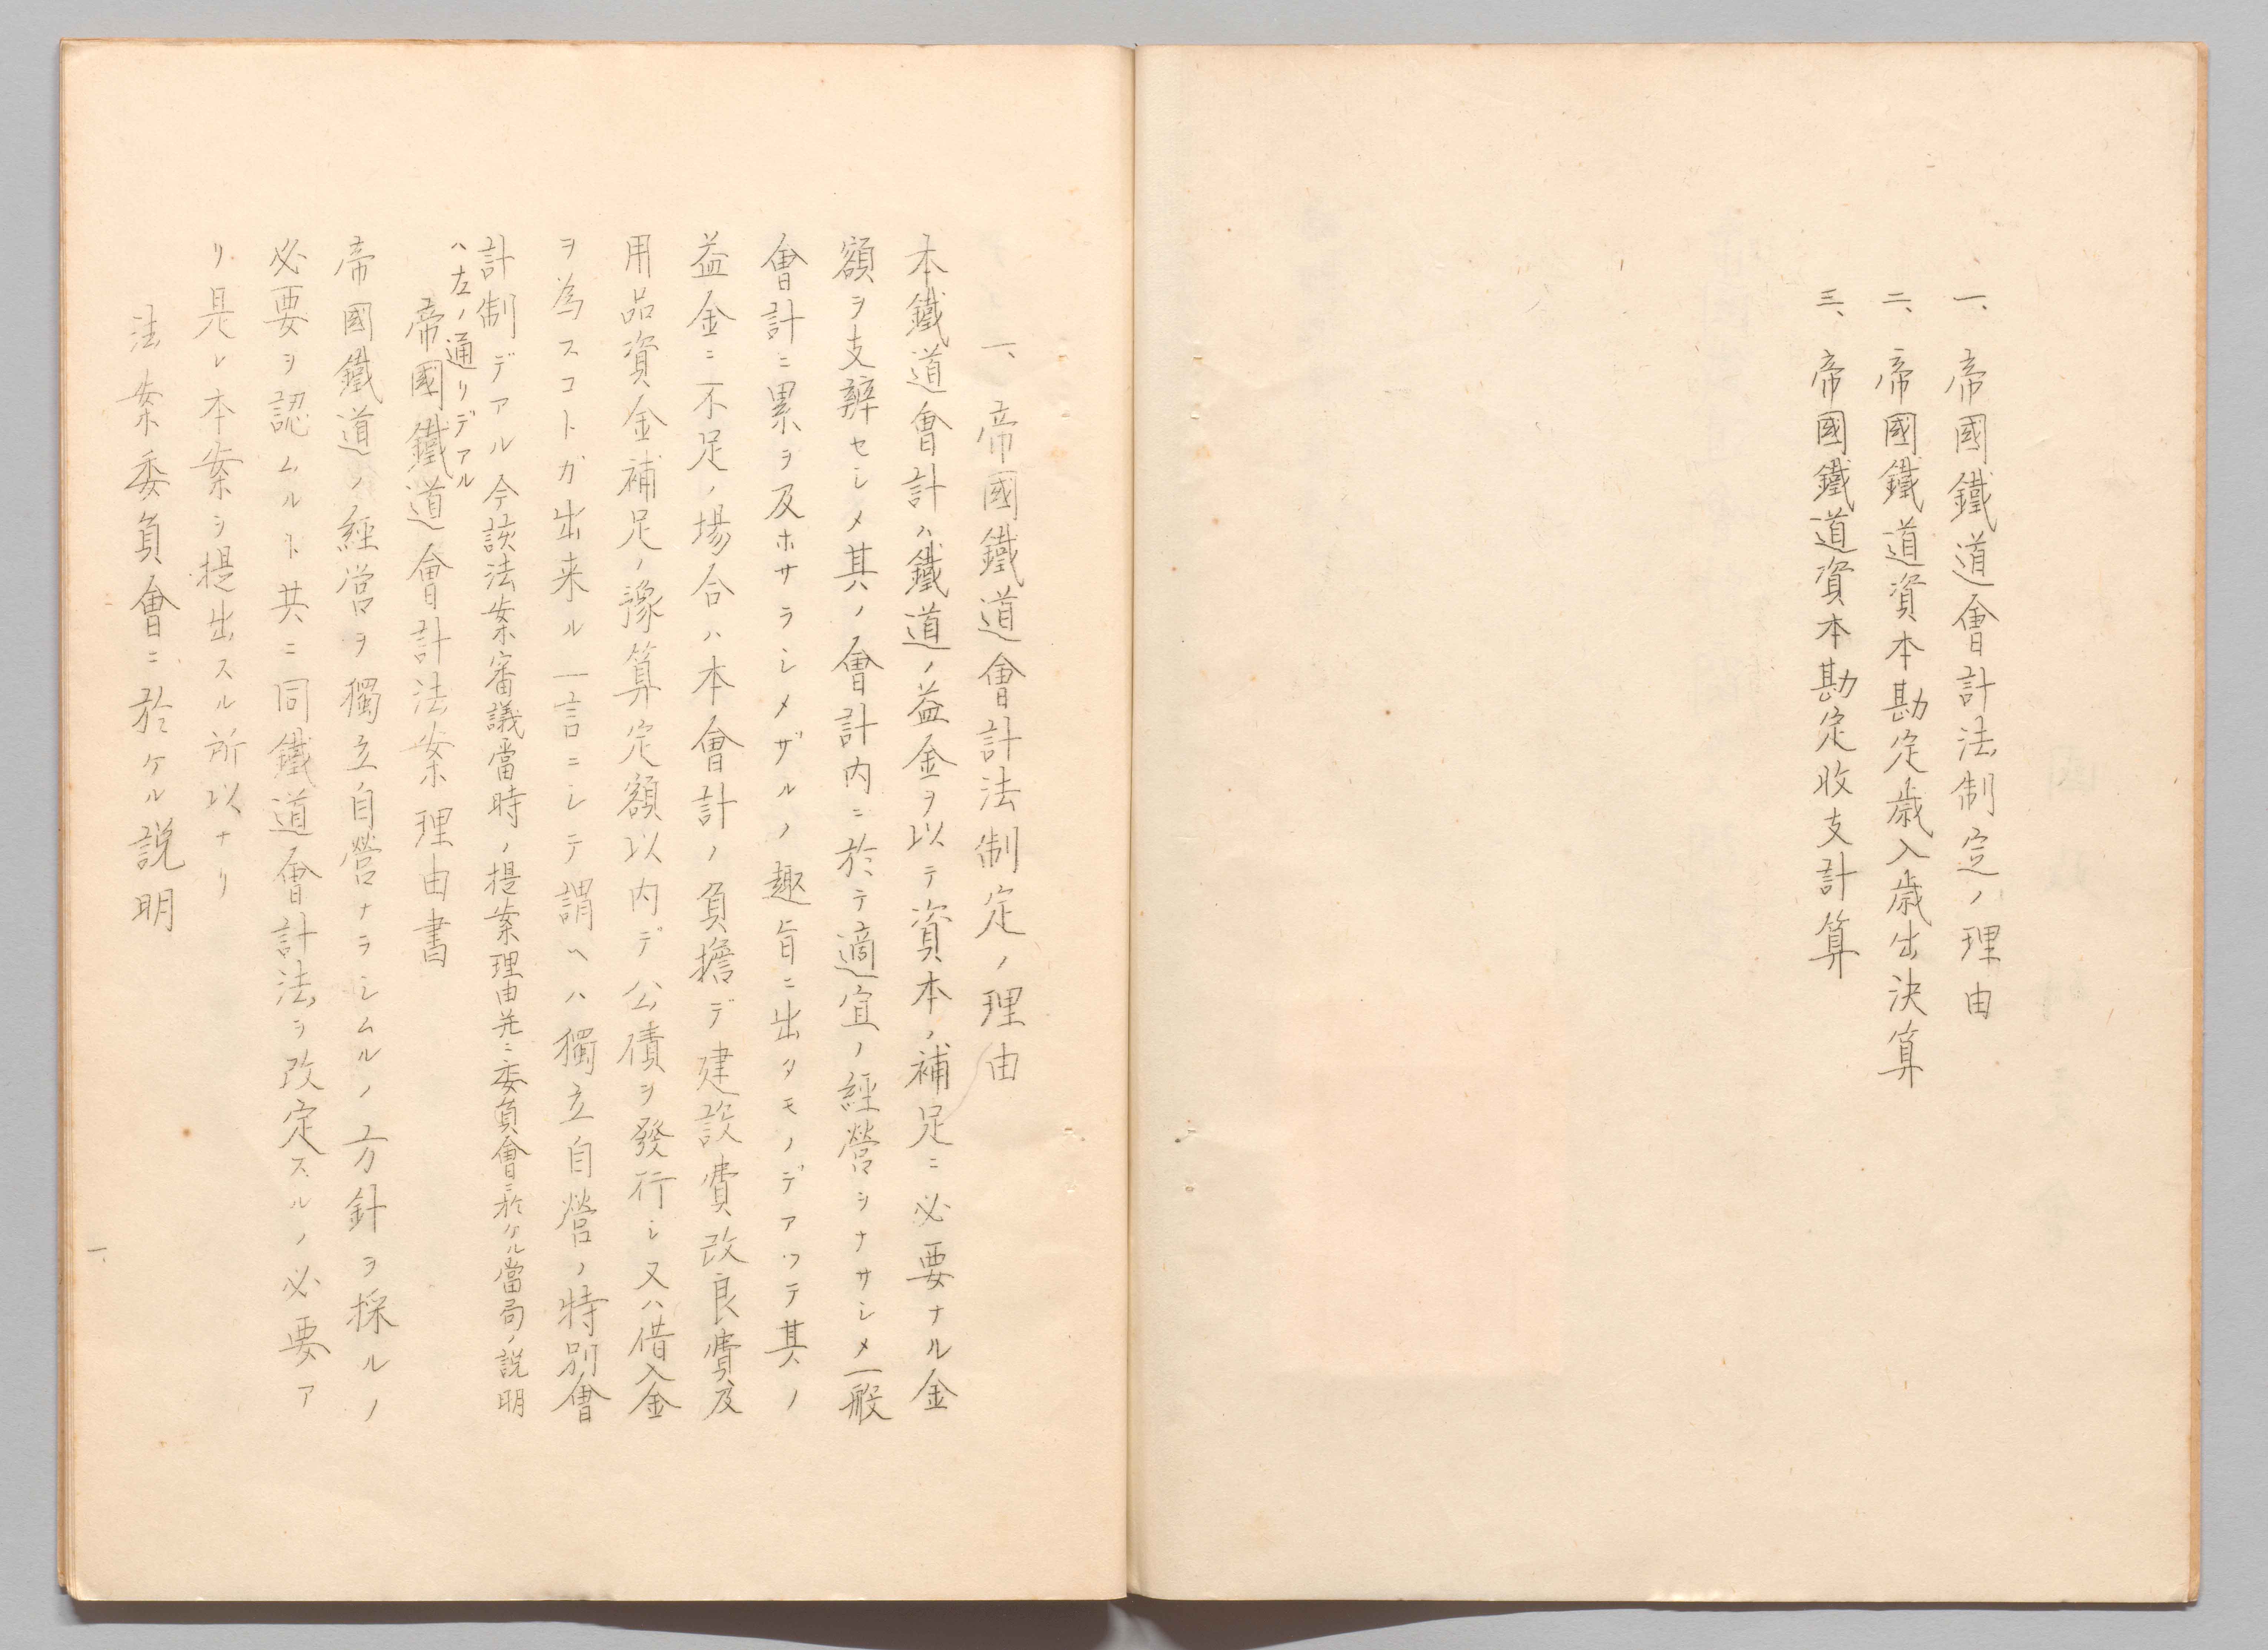 一、帝國鐵道會計法制定ノ理由
二、帝國鐵道資本勘定歳入歳出決算
三、帝國鐵道資本勘定收支計算
一、帝國鐵道會計法制定ノ理由
本鐵道會計ハ鐵道ノ益金ヲ以テ資本ノ補足ニ必要ナル金
額ヲ支辨セシメ其ノ會計内ニ於テ適宜ノ經營ヲナサシメ一般
會計ニ累ヲ及ホサラシメザルノ趣旨ニ出タモノデアツテ其ノ
益金ニ不足ノ場合ハ本會計ノ負擔デ建設費改良費及
用品資金補足ノ豫算定額以内デ公債ヲ發行シ又ハ借入金
ヲ為スコトガ出来ル一言ニシテ謂ヘハ獨立自營ノ特別會
計制デアル今該法案審議當時ノ提案理由并ニ委員會ニ於ケル當局ノ説明
ハ左ノ通リデアル
帝國鐵道會計法案理由書
帝國鐵道ノ經営ヲ獨立自營ナラシムルノ方針ヲ採ルノ
必要ヲ認ムルト共ニ同鐵道會計法ヲ改定スルノ必要ア
リ是レ本案ヲ提出スル所以ナリ
法案委員會ニ於ケル説明
一、